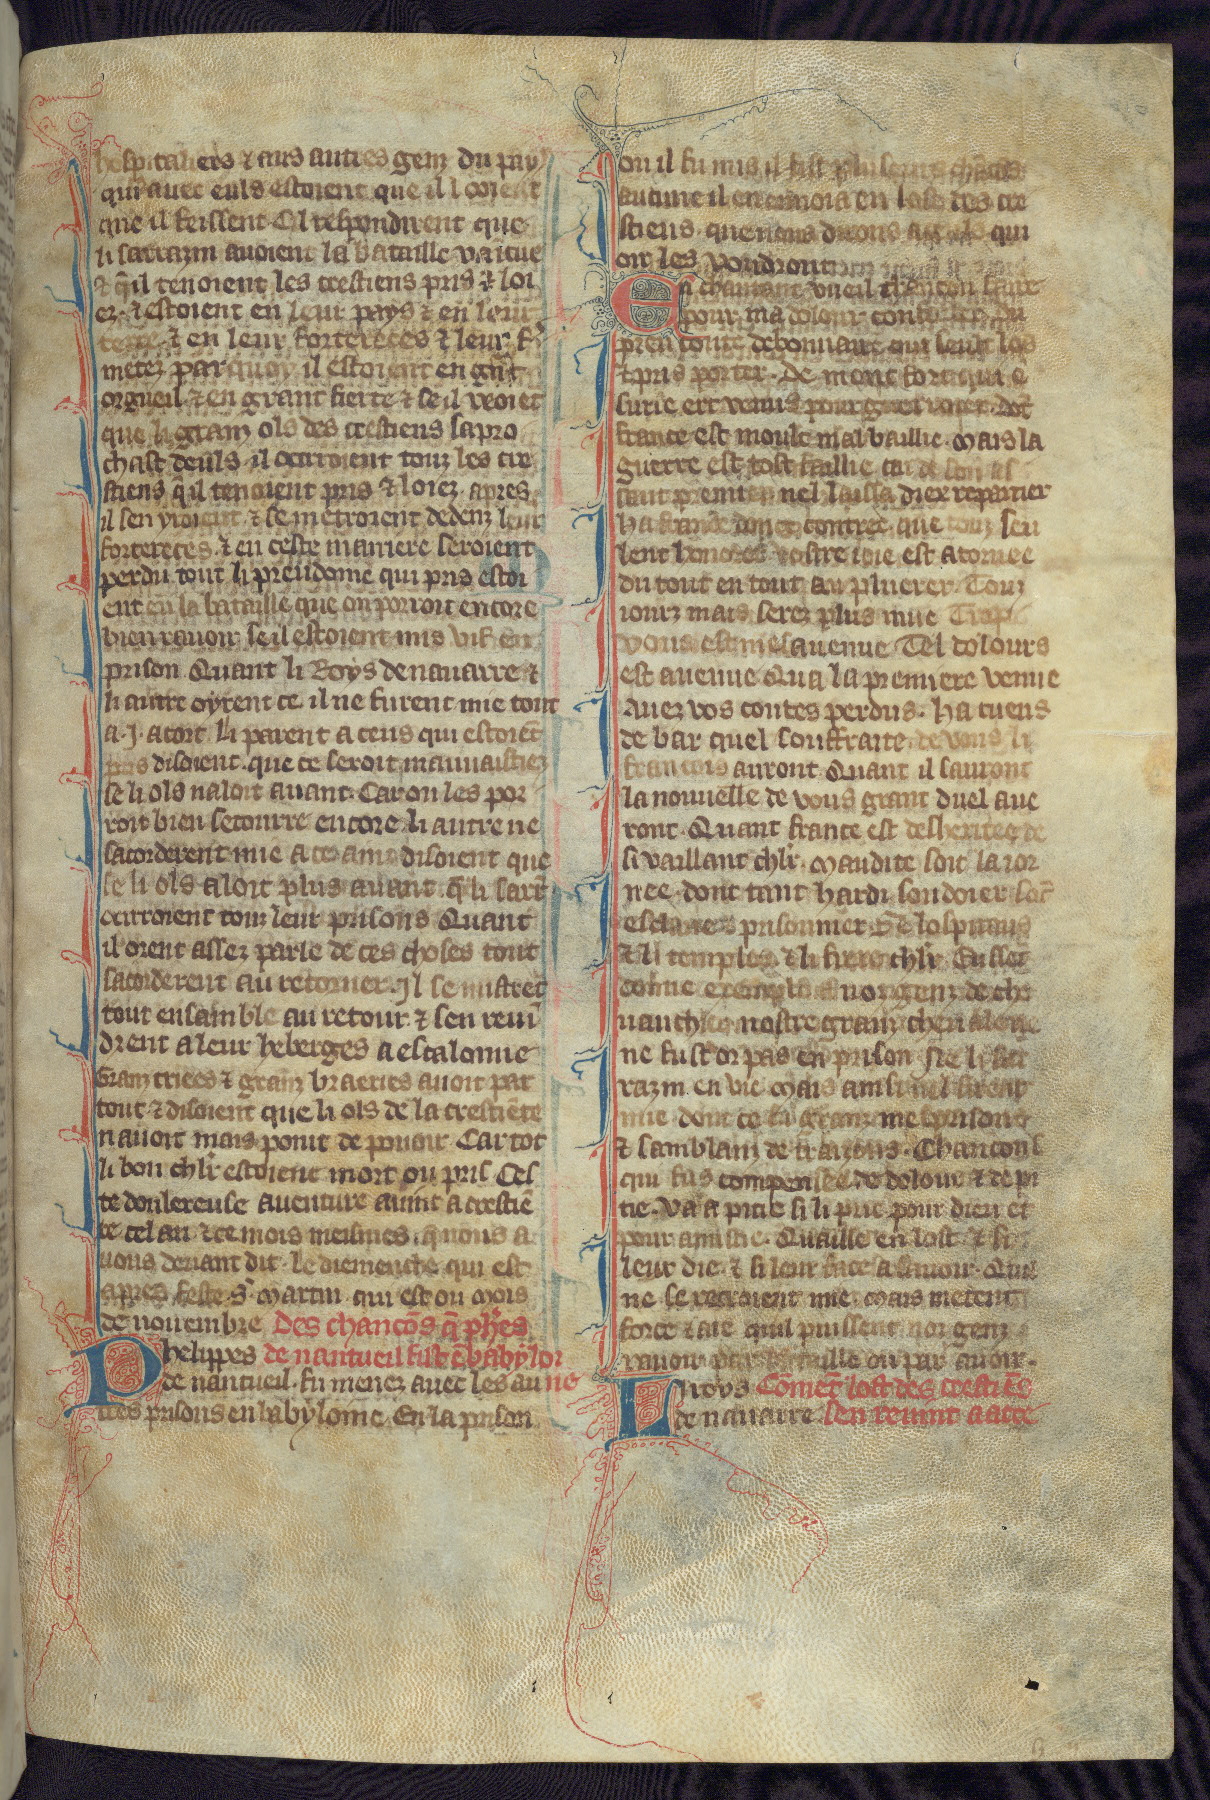 hospitaliers & aus autres genz du pays
qui auec euls estoient que il looient
que il feissent. Cil respondirent que
li sarrazin auoient la bataille vaincue
& q̃ il tenoient les crestiens pris & loi
ez. & estoient en leur pays & en leur
terre. & en leur forterèces & leur fr
metez par quoy il estoient en gñt
orgueil & en grant fierte & se il veoiẽt
que li granz ols des crestiens sapro
chast deuls. il occirroient touz les cre
stiens q̃ il tenoient pris & loiez. apres
il sen yroient & se metroient dedenz leur
forterèces. & en ceste maniere seroient
perdu tout li preudome qui pris estoi
ent en la bataille que on porroit encore
bien rauoir se il estoient mis vif en
prison. Quant li Roys de nauarre &
li autre oyrent ce. il ne furent mie tout
a .j. acort. li parent a ceus qui estoiẽt
pris disoient. que ce seroit mauuaistiez
se li ols naloit auant. Car on les por
roit bien secourre encore. li autre ne
sacorderent mie a ce ainz disoient que
se li ols aloit plus auant. q̃ li sarr
occirroient touz leur prisons. Quant
il orent assez parle de ces choses tout
sacorderent au retorner. Il se mistrẽt
tout ensamble au retour. & sen reuĩ
drent a leur heberges a escalonne
Granz criees & granz braeries auoit par
tout. & disoient que li ols de la crestiẽte
nauoit mais point de pouoir. Car tot
li bon chlr estoient mort ou pris. Ces
te doulereuse auenture auint a crestiẽ
te cel an & ce mois meismes. q̃ nous a
uons deuant dit. le diemenche qui est
apres feste .S. Martin. qui est ou mois
de nouembre. Des chancõs q̃ phẽs
Phelippes de nantueil fist ẽ babylor
de nantueil. fu menez auec les au ne
tres prisons en babyloine. En la prison
ou il fu mis il fist plusieurs chãcõs
aucune il en enuoia en lost des cre
stiens. que nous dirons a ceuls qui
oir les voudront
En chantant vueil
pour ma dolour conforter. du
preu conte debonnaire qui seult los
& pris porter. De mont fort qui e
surie ert venus pour guerroier. dõt
france est moult mal baillie. Mais la
guerre est tost faillie car de son as
saut premier nel laissa diex repairier
Ha france douce contree. que touz seu
lent honorer. vostre ioie est atornee
du tout en tout au pluerer. Touz
iourz mais serez plus mue Trop
vous est mesauenue Tel dolours
est auenue Qua la premiere venue
Auez vos contes perdus. Ha cuens
de bar quel souffraite. de vous li
francois auront. Quant il sauront
la nouuelle de vous grant duel aue
ront. Quant france est desheritee de
si vaillant chlr. Maudite soit la ior
nee. dont tant hardi soudoier sõt
esclaue & prisonnier. Se lospitaus
& li temples. & li frere chlr. Eussẽt
donne exemple a nos genz de che
uauchier. nostre grant cheualerie
ne fust or pas en prison. Ne li sar
razin en vie. Mais ainsi nel firent
mie. dont ce fu granz mesprisons
& samblanz de traisons. Chancons
qui fus compensee. de dolour & de pi
tie. Va a pitie si li prie. pour dieu et
pour amistie. Quaille en lost & si
leur die. & si leur face a sauoir. Quil
ne se recroient mie. Mais metent
force & aie quil puissent nos genz
rauoir. par bataille ou par auoir.
Li roys Cõmẽt lost des crestiẽs
de nauarre sen reuint a acre